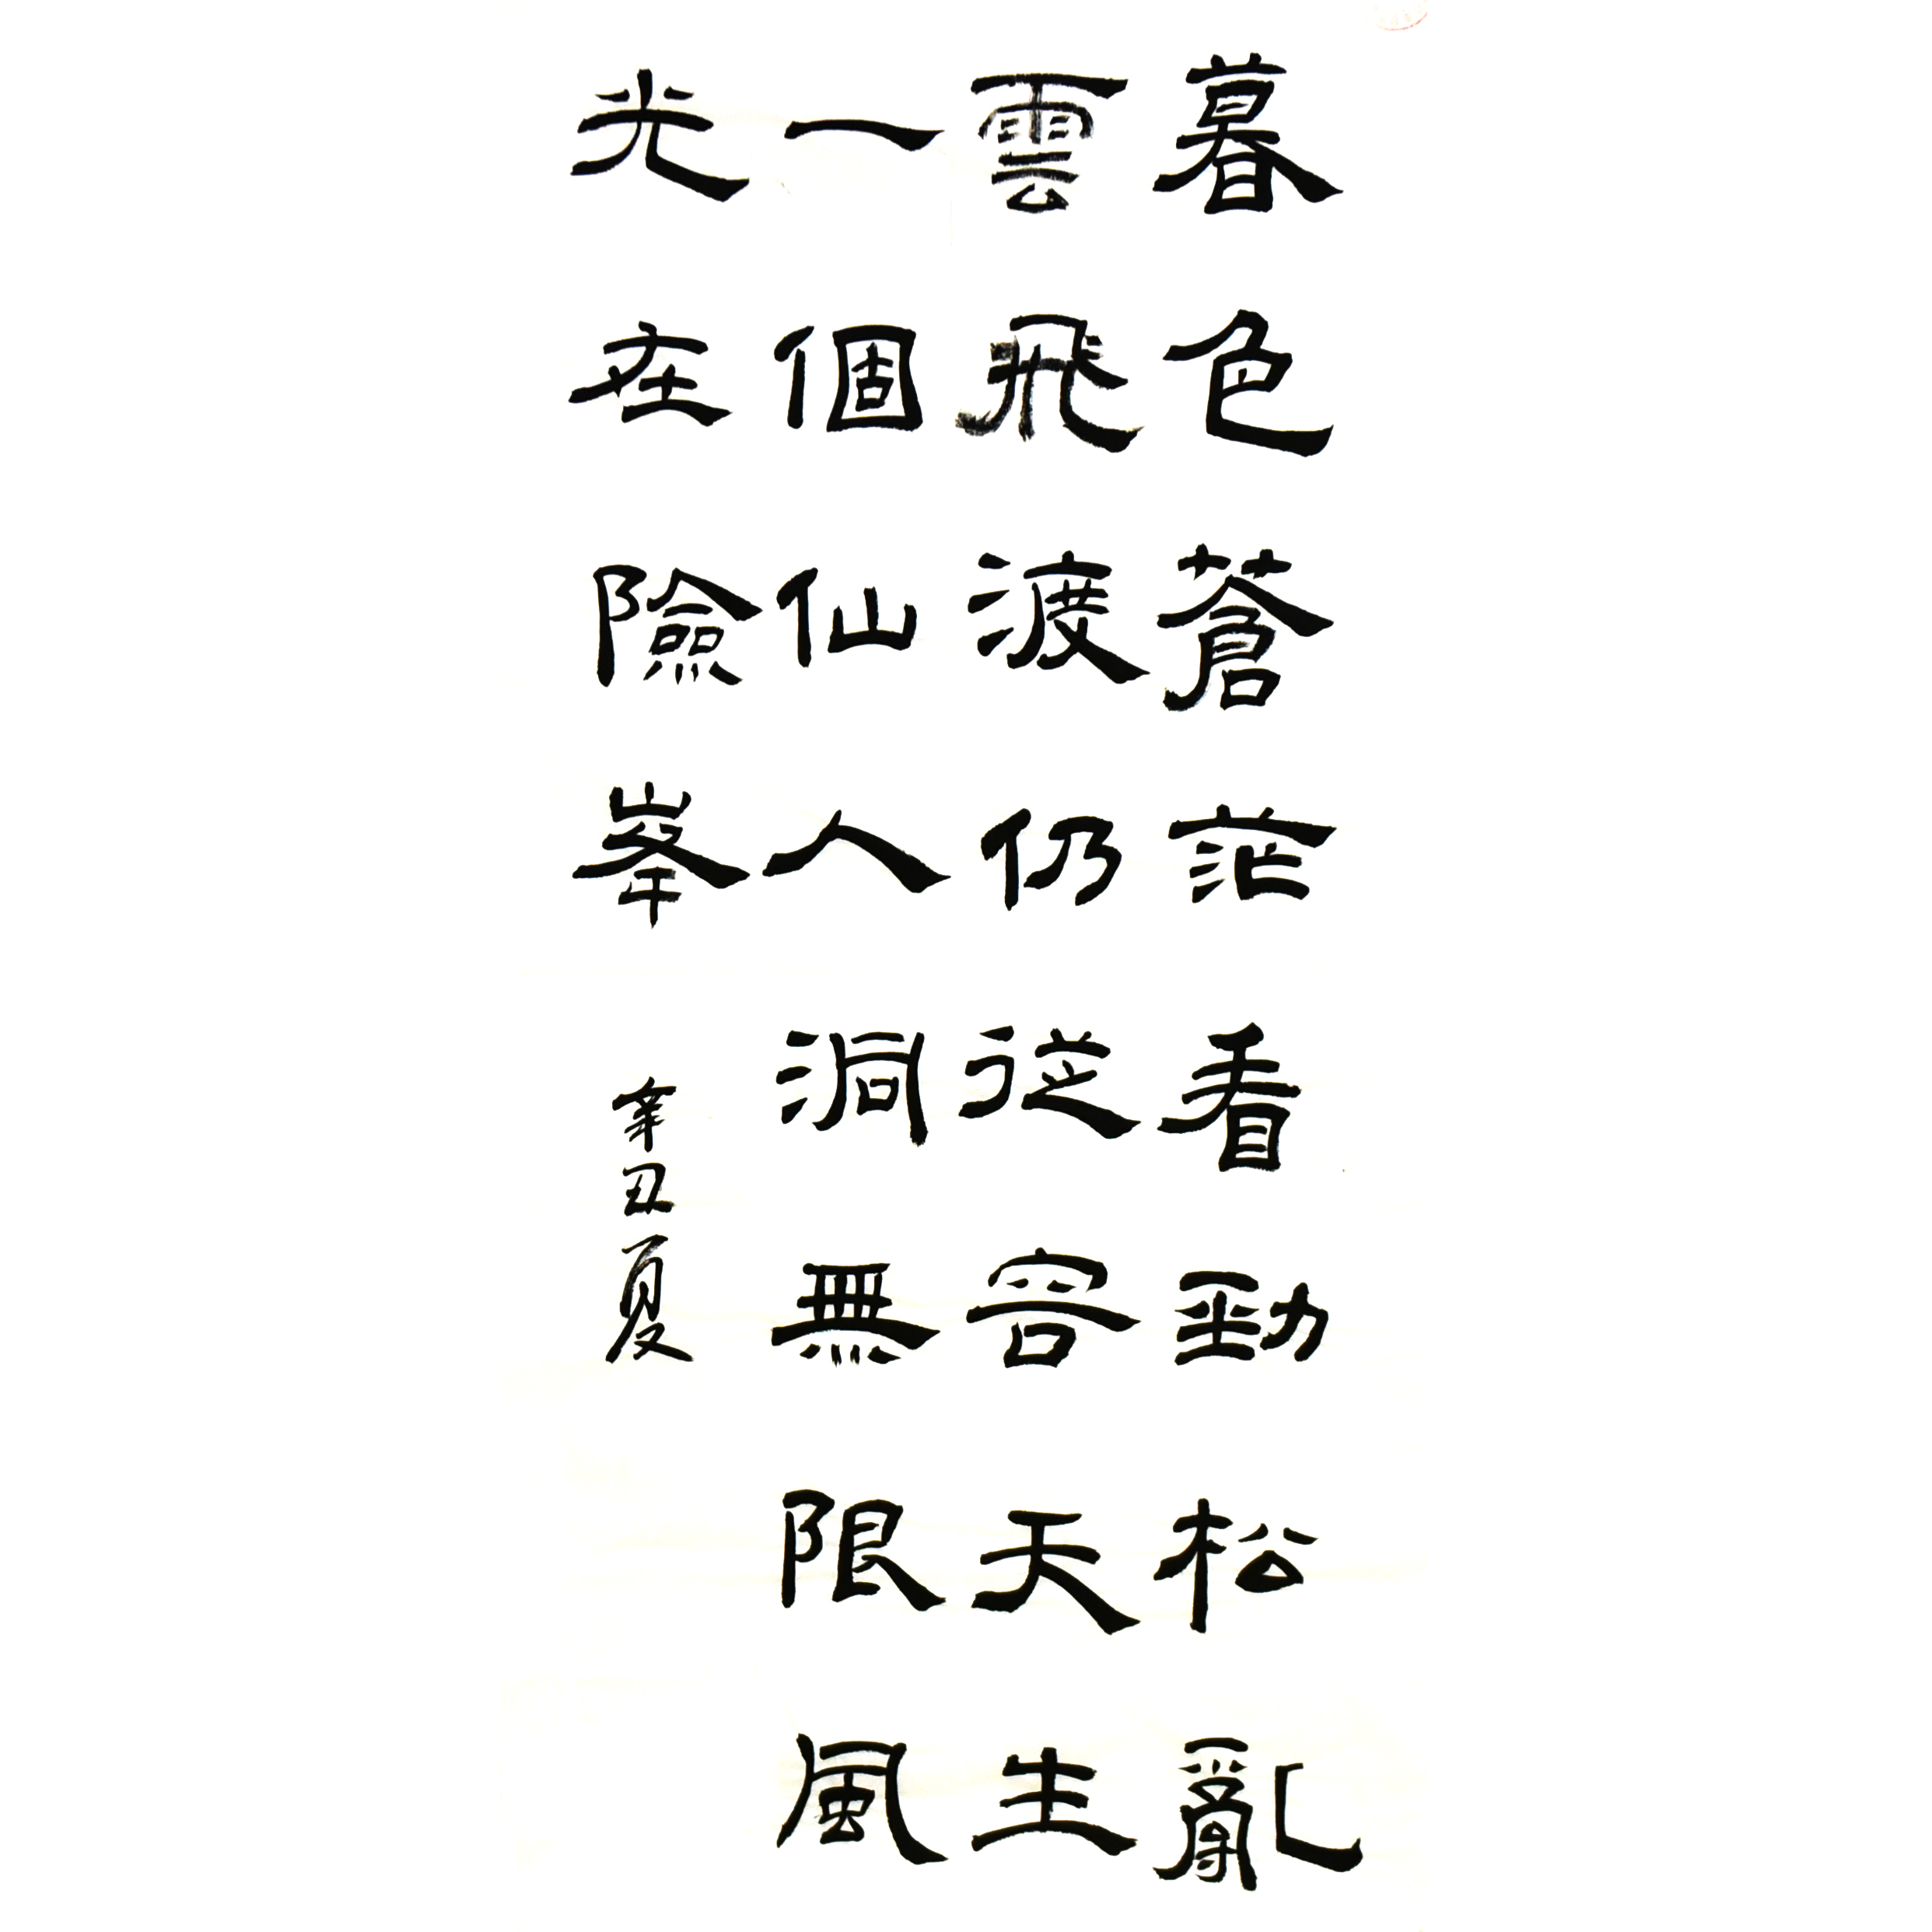 暮色蒼茫看勁松亂
雲飛渡仍從容天生
一個仙人洞無限風
光在險峯
辛丑夏